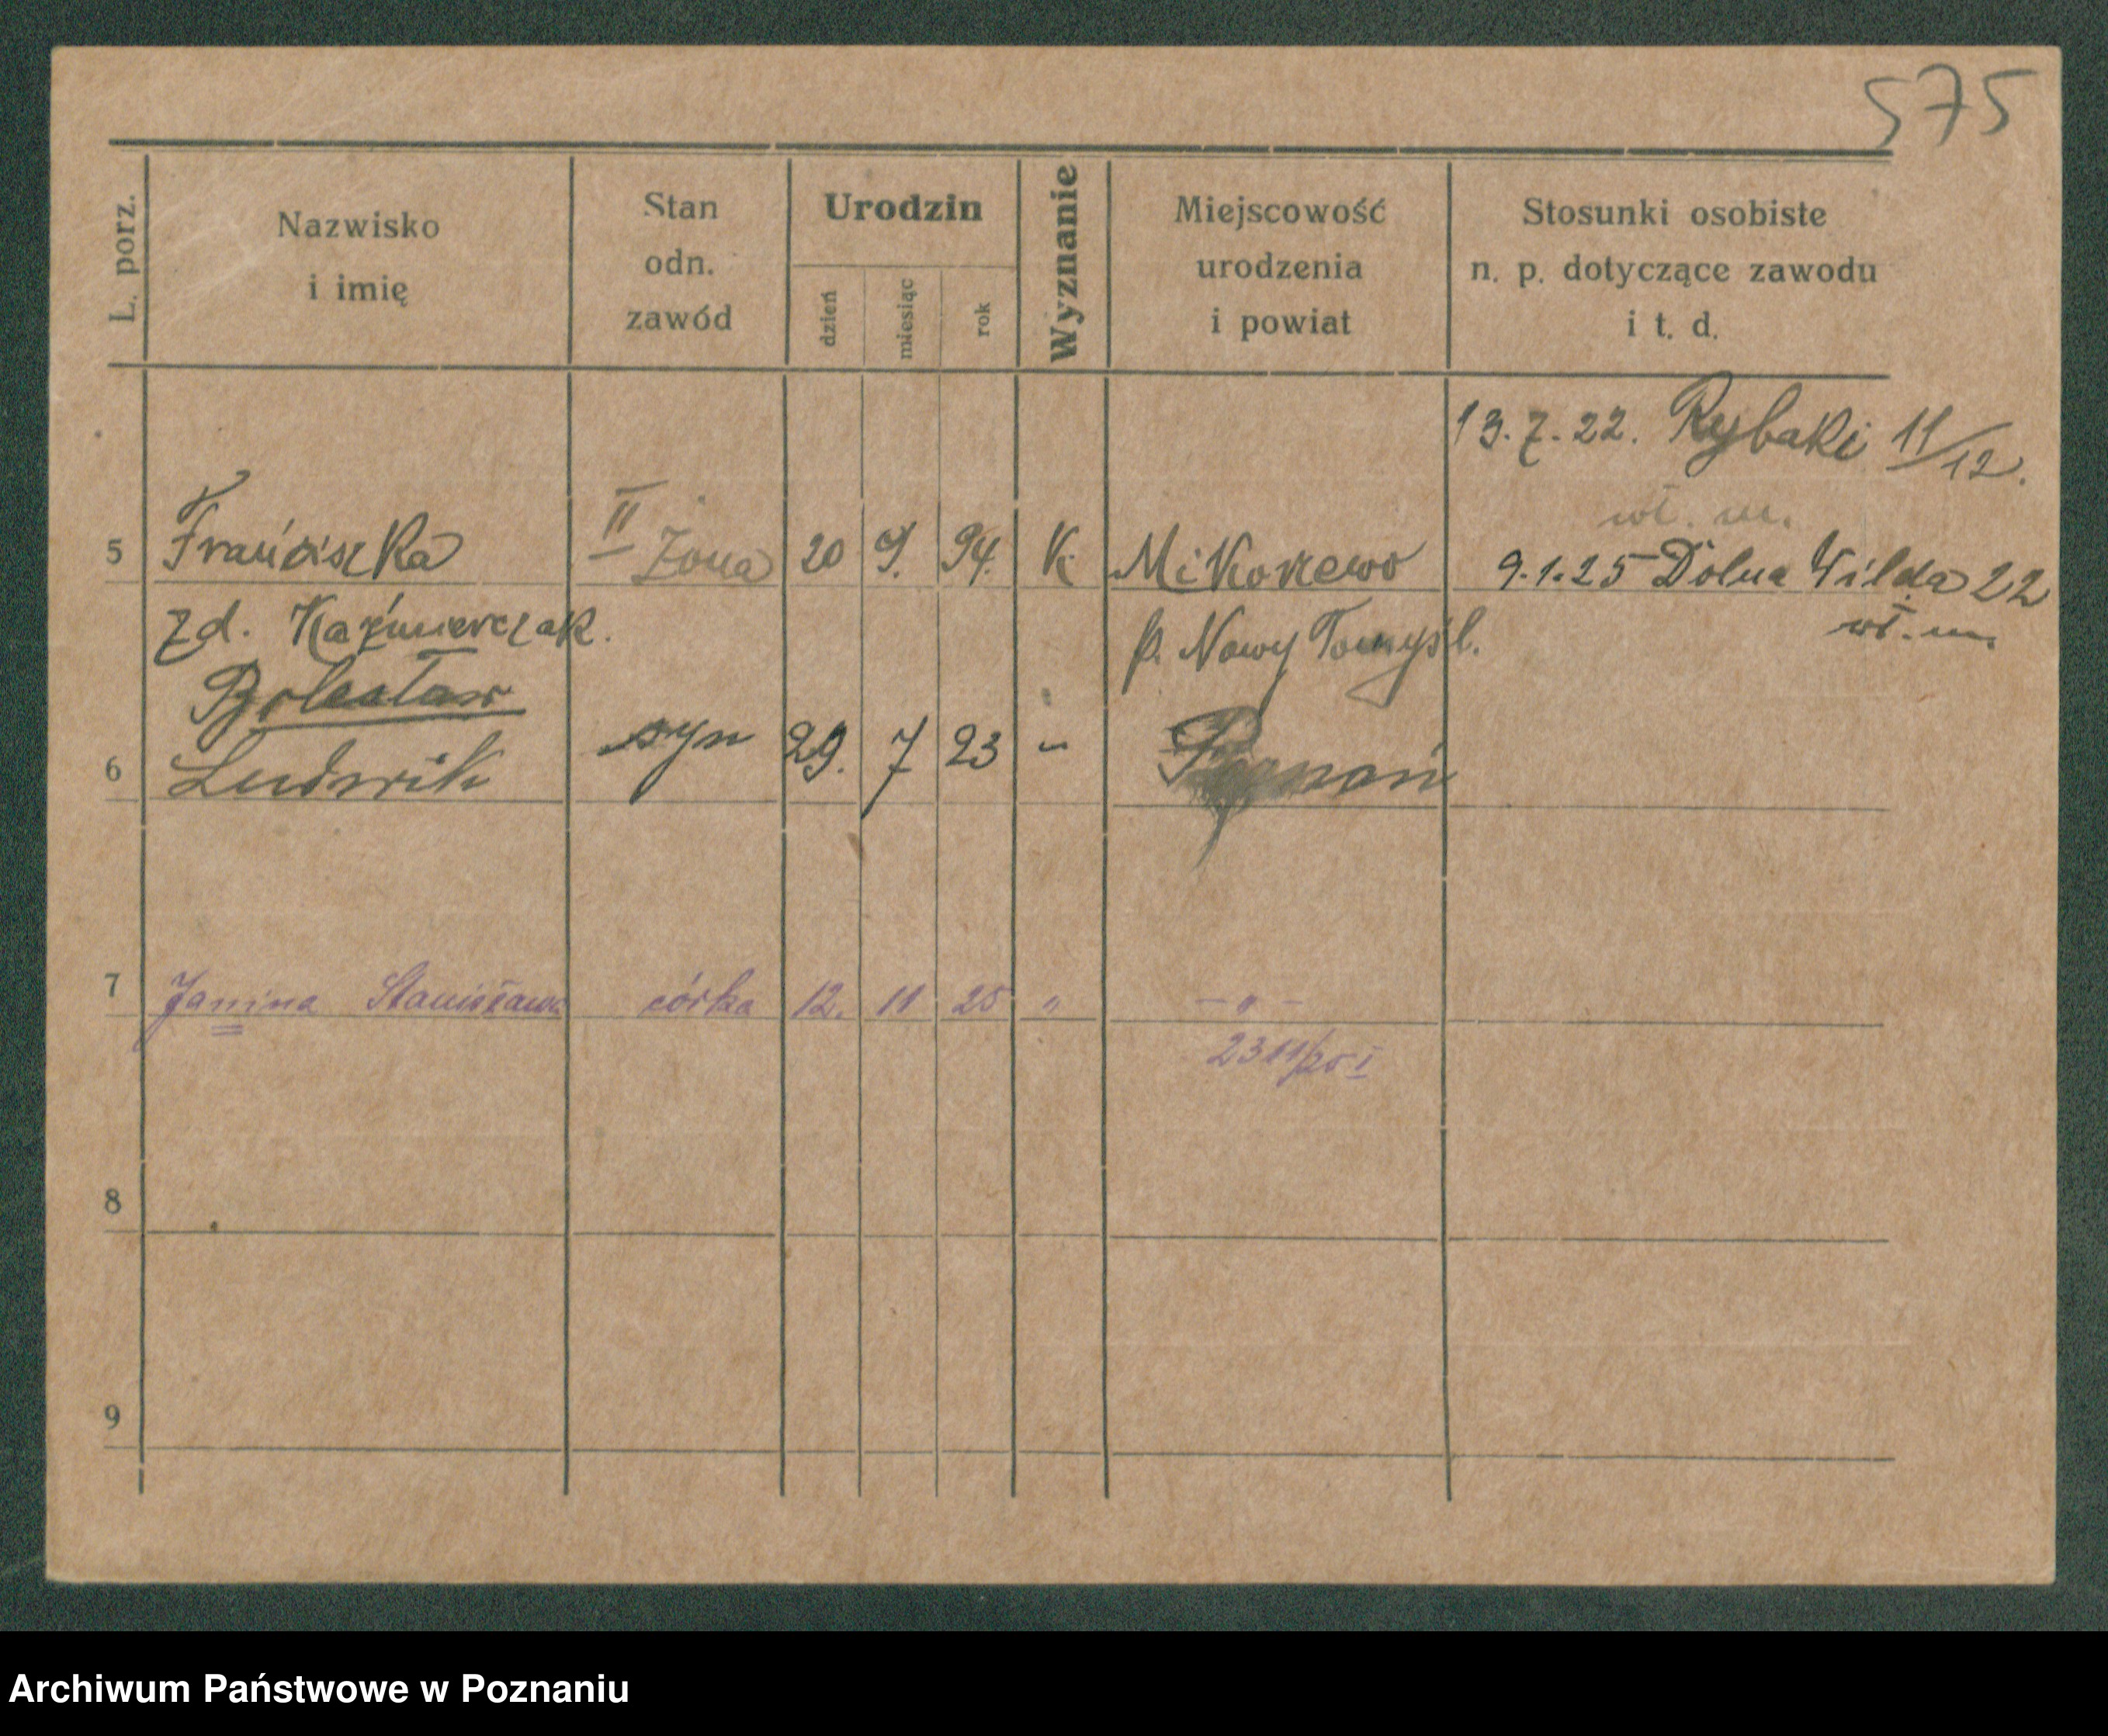 575
L. porz.
Nazwisko
i imię
Stan
odn.
zawód
Urodzin
dzień
miesiąc
rok
Wyznanie
Miejscowość
urodzenia
i powiat
Stosunki osobiste
n. p. dotyczące zawodu
i t. d.
13.7.22. Rybaki 11/12.
wł. m.
5 Franciszka II Żona 20 9. 94. K. 9.1.25 Dolna Wilda 22
zd. Kaźmierczak. p. Nowy Tomyśl. wł. m.
Bolesław
6 Ludwik syn 29. 7 23 " Poznań
7 Janina Stanisława córka 12. 11 25 " - " -
2311/25 I
8
9
Archiwum Państwowe w Poznaniu